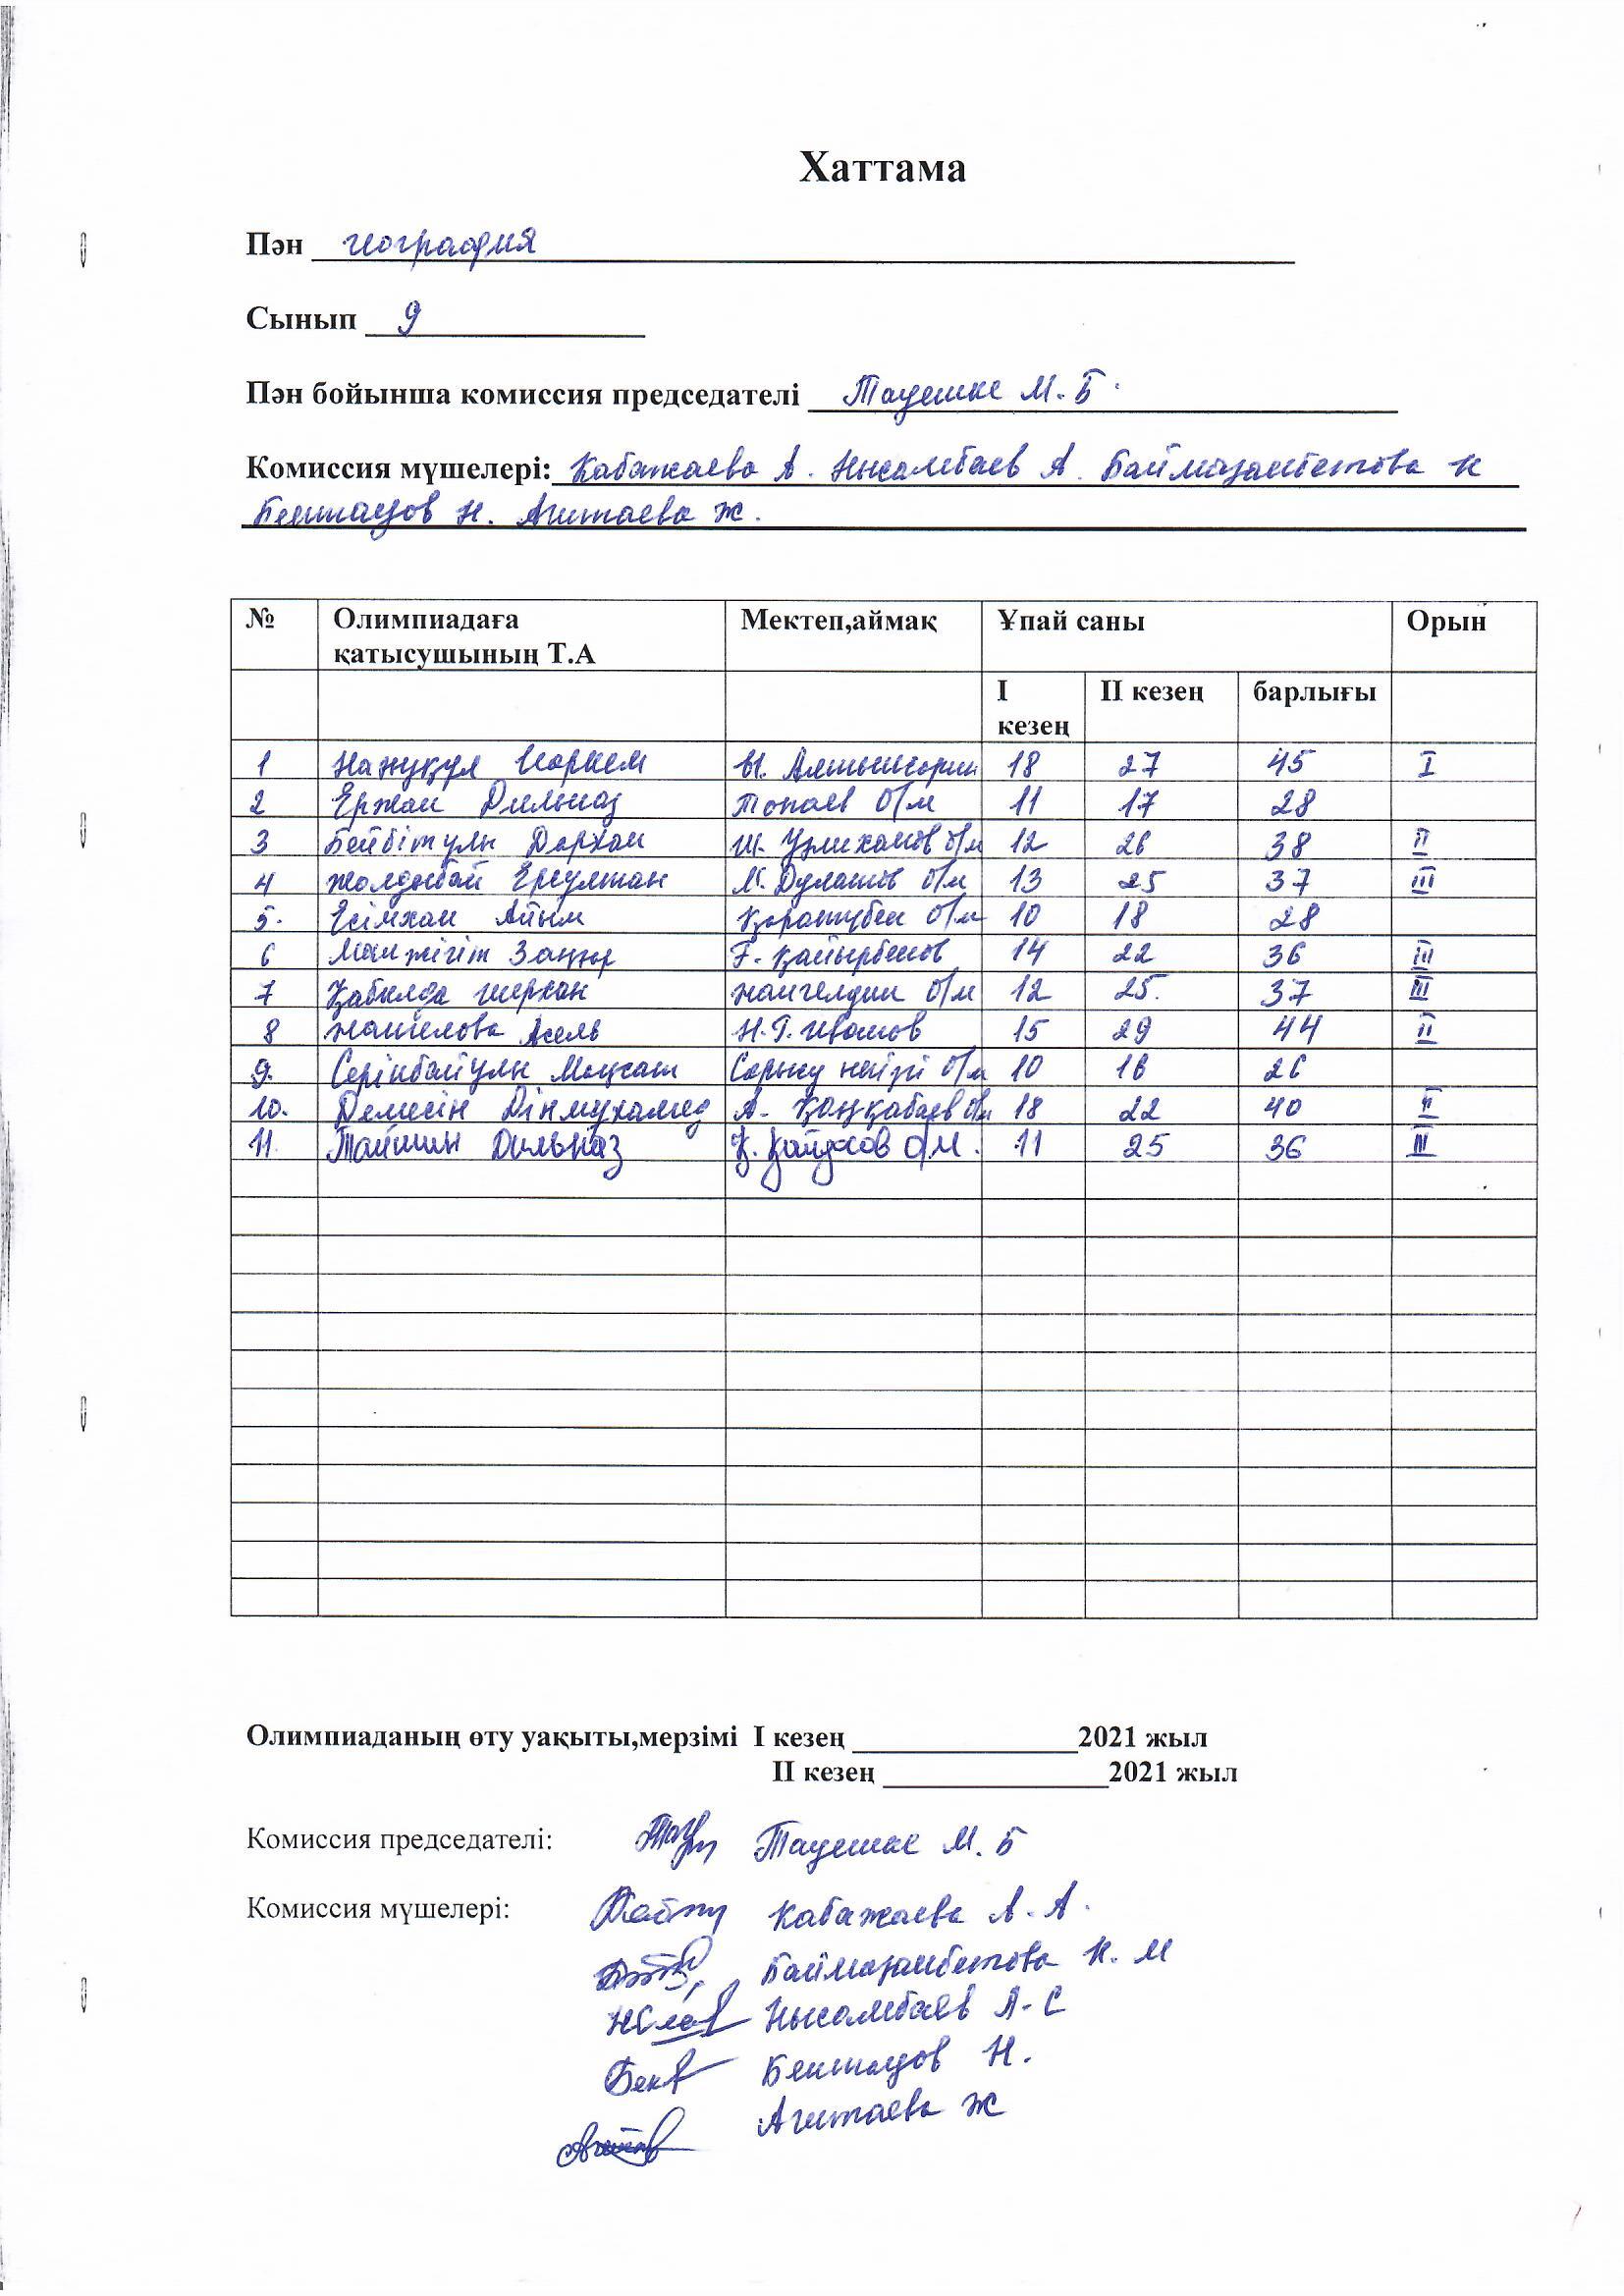 Хаттама
Пән география
Сынып 9
Пән бойынша комиссия председателі Таушке М.Б.
Комиссия мүшелері: Кабажаева А. Нысамбаев А. Баймағамбетова К
Бектасов Н. Агитаева Ж.
№ Олимпиадаға қатысушының Т.А Мектеп,аймақ Ұпай саны Орын
І кезең ІІ кезең барлығы
1 Көркем Ы. Алтынсарин 18 27 45 I
2 Ержан Дильназ Топаев о/м 11 17 28
3 Бейбітұлы Дархан Ш. Уәлиханов о/м 12 26 38 II
4 Жолдыбай Ерсултан М. Дулатов о/м 13 25 37 III
5. Есімхан Айым Қаратубек о/м 10 18 28
6 Малжігіт Заңғар Ғ. Қайырбеков 14 22 36 III
7 Қабылда Шерхан Жангелдин о/м 12 25. 37 III
8 Асель Н.Г. Иванов 15 29 44 II
9. Серікбайұлы Мықсат о/м 10 16 26
10. Демесін Дінмухамед А. Қаңқабаев о/м 18 22 40 II
11. Дильназ Қ. Қайдосов о/м. 11 25 36 III
Олимпиаданың өту уақыты,мерзімі І кезең 2021 жыл
ІІ кезең 2021 жыл
Комиссия председателі: Таушке М.Б
Комиссия мүшелері: Кабажаева А.А.
Баймағамбетова К. М
Нысамбаев А.С
Бектасов Н.
Агитаева Ж